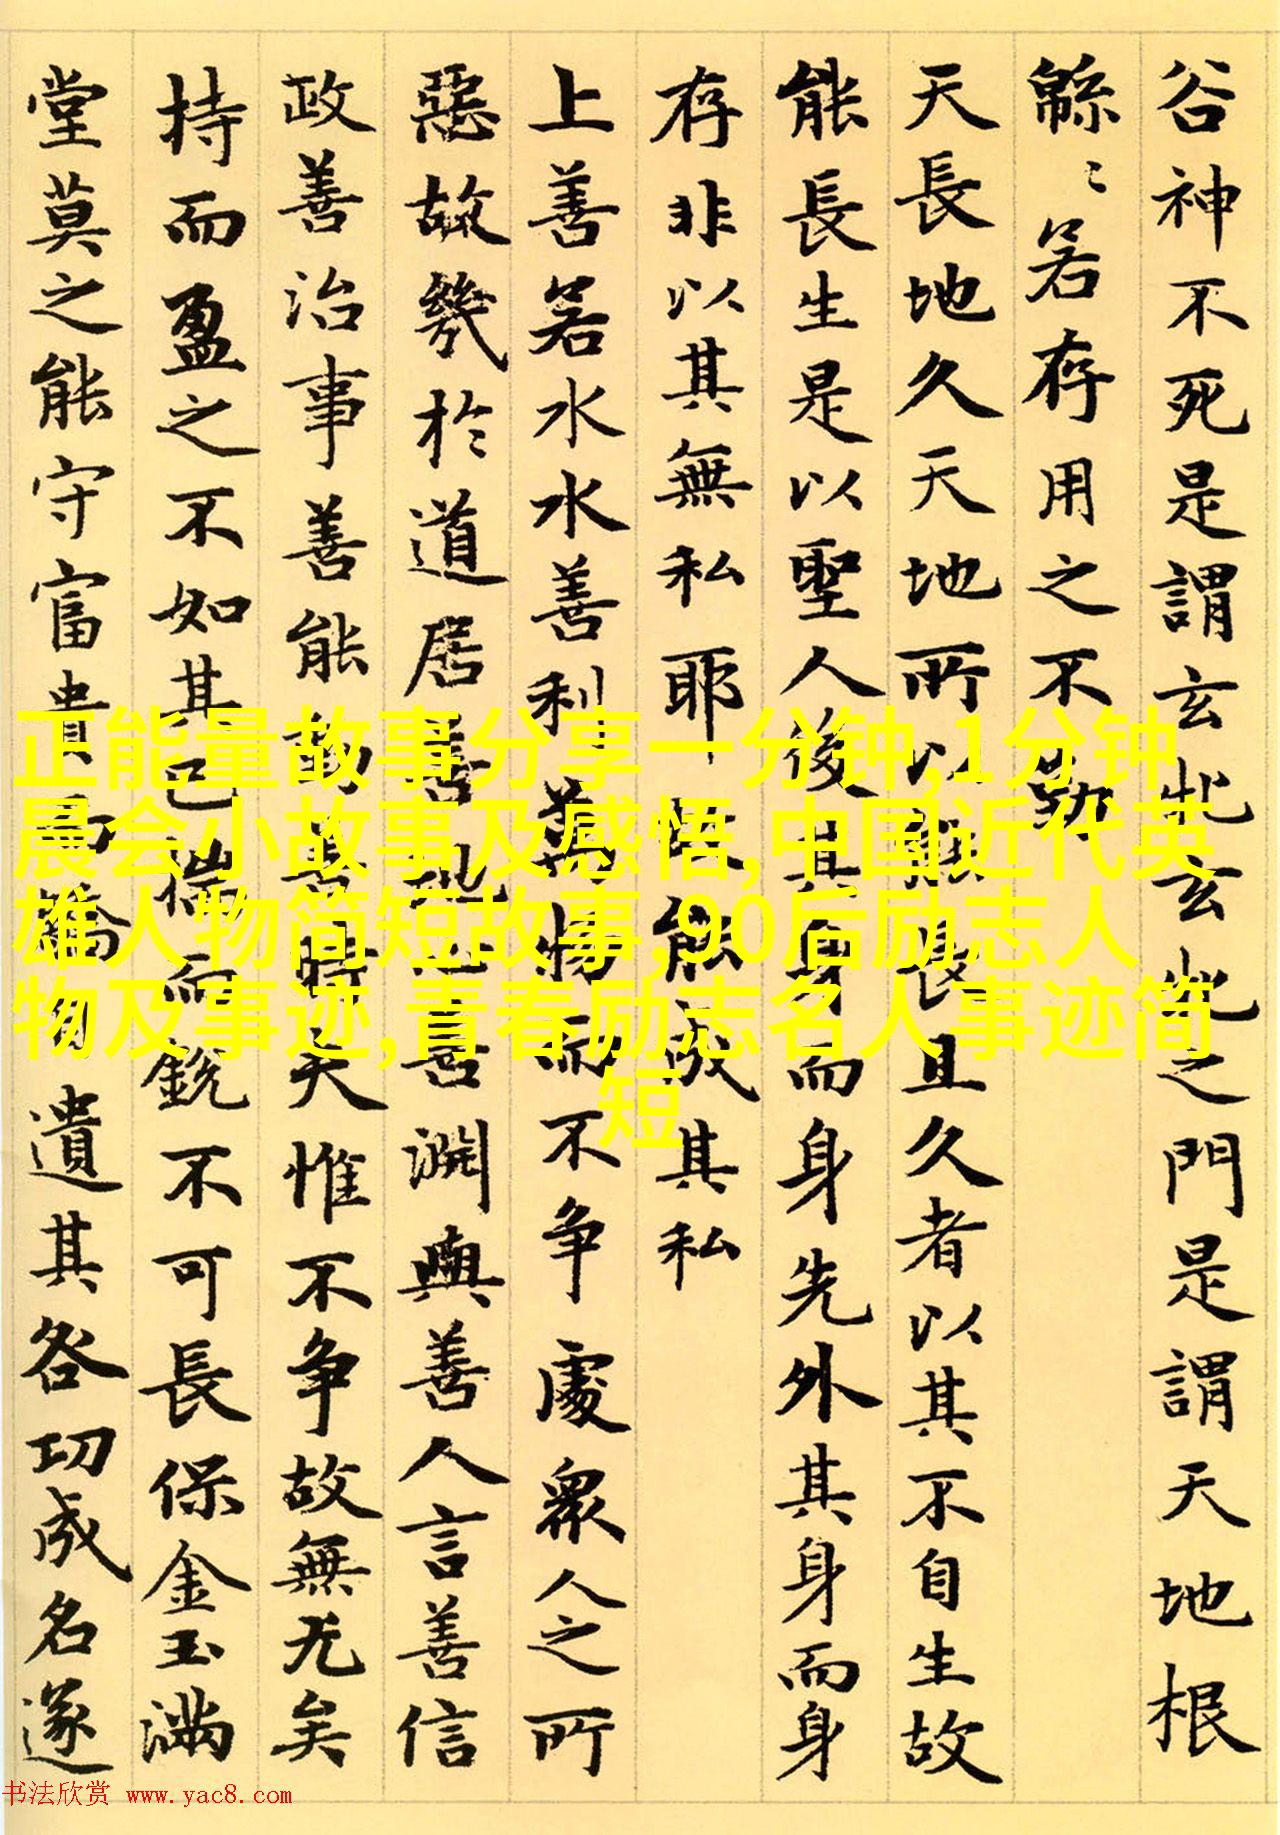 谷神不死是謂玄牝玄牝之門是謂天地根
緜〻若存用之不勤
天長地久天地所以能長且久者以其不自生故
能長生是以聖人後其身而身先外其身而身
存非以其無私耶故能成其私
上善若水水善利萬物而不争處衆人之所
惡故幾於道居善地心善淵與善人言善信
政善治事善能動善時夫惟不争故無尤矣
持而盈之不如其已揣而銳不可長保金玉滿
堂莫之能守富貴而驕自遺其咎功成名遂
正能量故事分享一分钟,1分钟
晨会小故事及感悟,中国近代英
雄人物简短故事,90后励志人
物及事迹,青春励志名人事迹简
短
书法欣赏 www.yac8.com